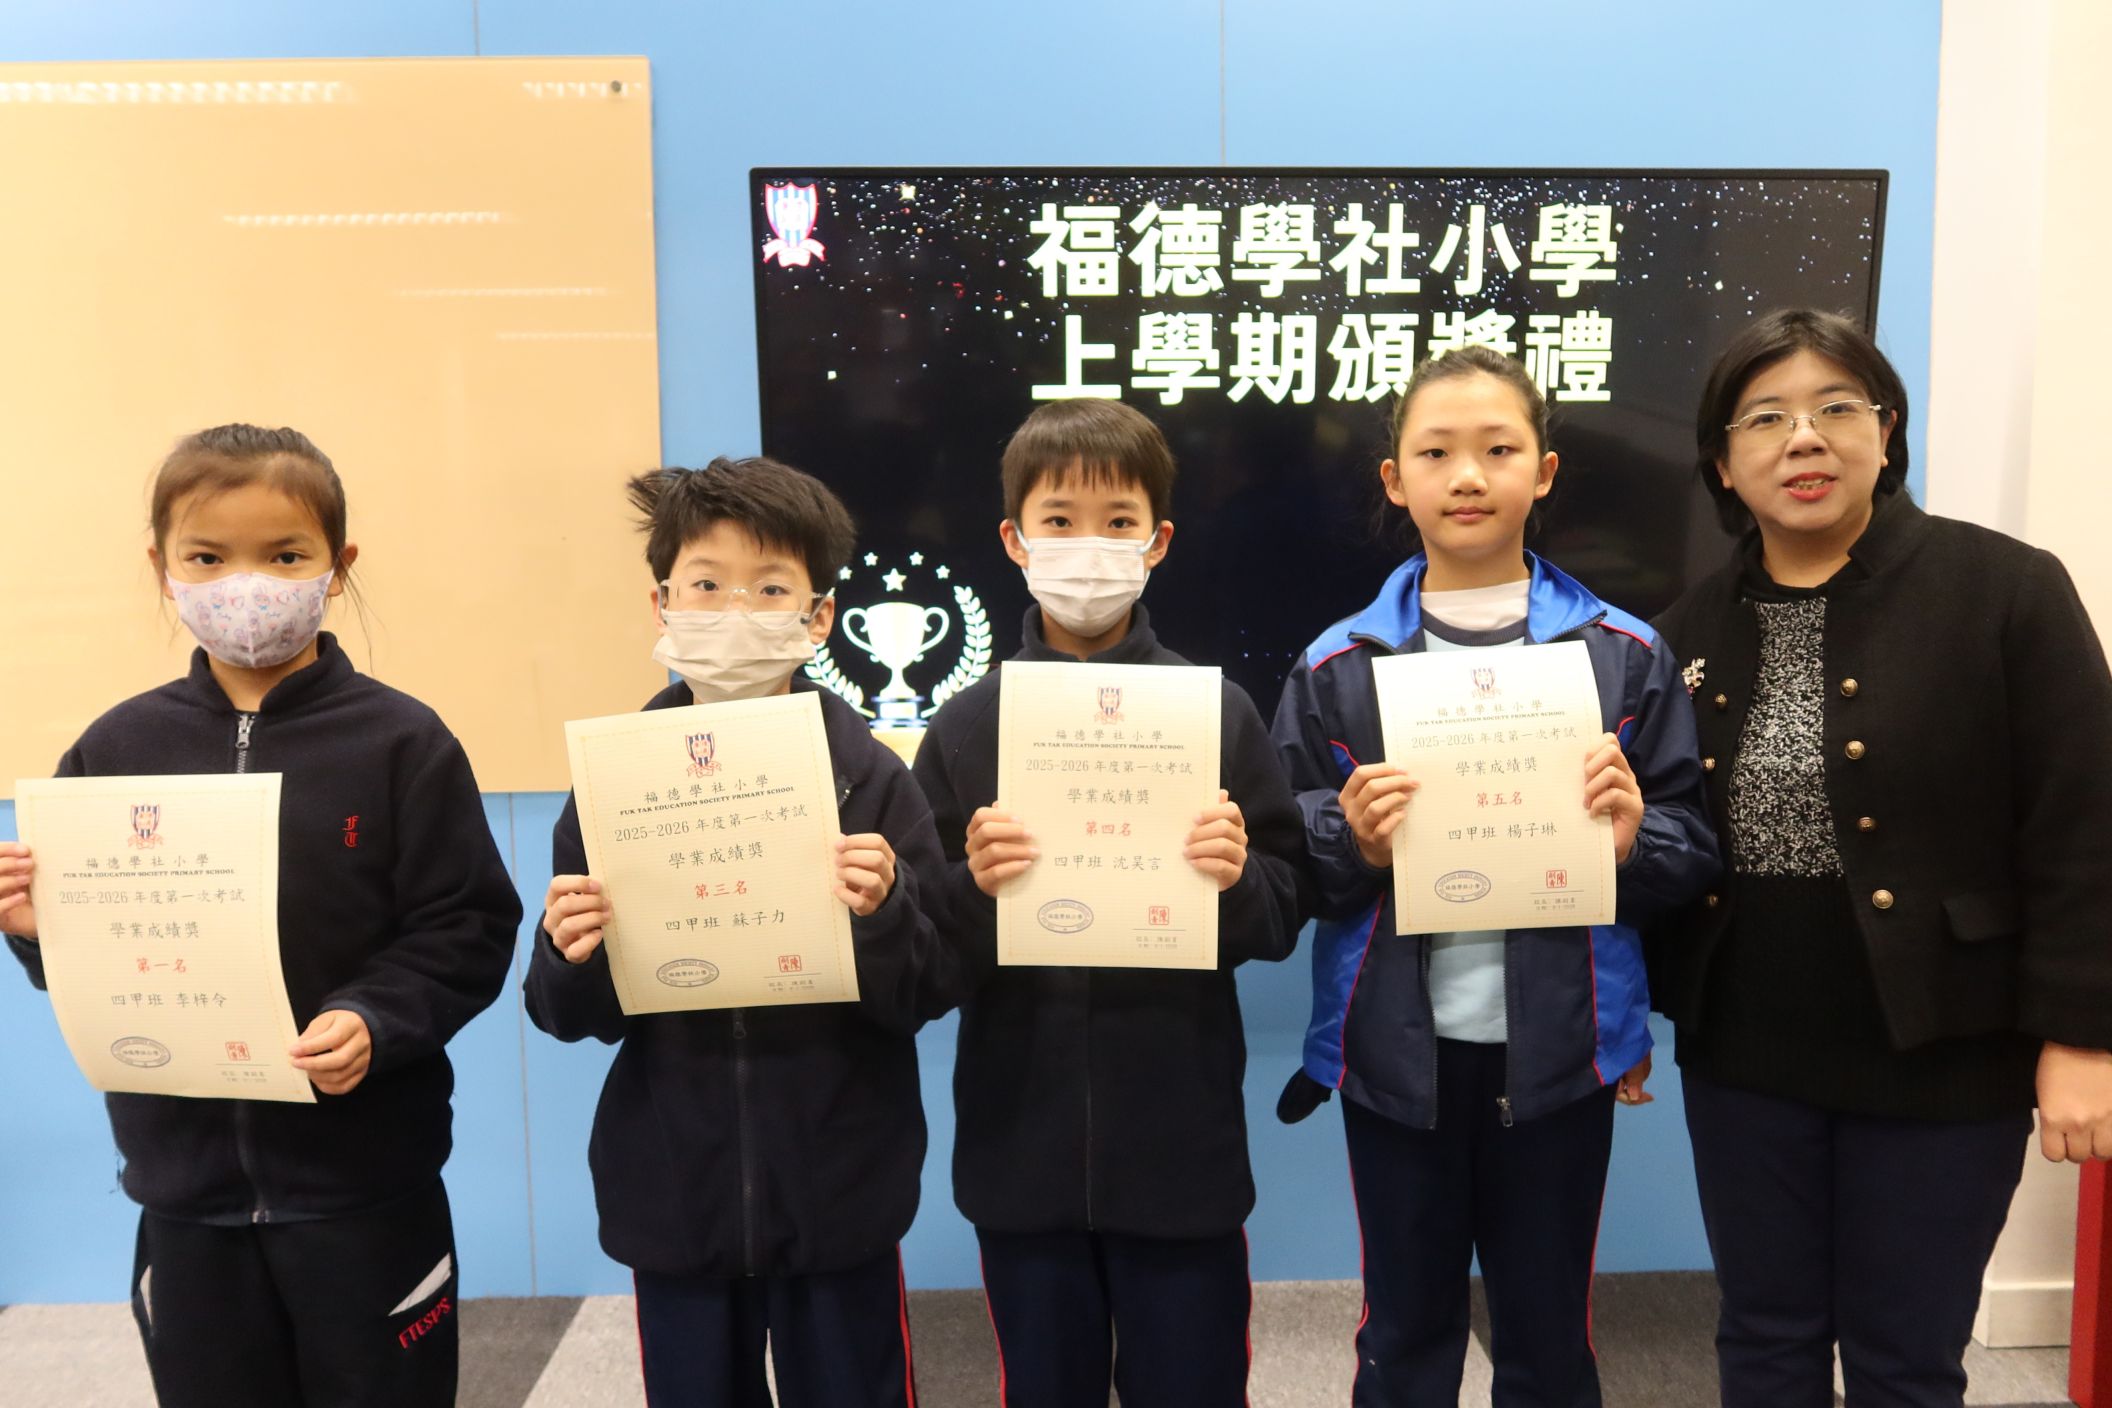 福德學社小學
上學期頒獎禮
福德學社小學
FUK TAK EDUCATION SOCIETY PRIMARY SCHOOL
2025-2026年度第一次考試
學業成績獎
第一名
四甲班 李梓令
福德學社小學
FT
FTESPS
福德學社小學
FUK TAK EDUCATION SOCIETY PRIMARY SCHOOL
2025-2026年度第一次考試
學業成績獎
第三名
四甲班 蘇子力
福德學社小學
福德學社小學
FUK TAK EDUCATION SOCIETY PRIMARY SCHOOL
2025-2026年度第一次考試
學業成績獎
第四名
四甲班 沈昊言
福德學社小學
福德學社小學
FUK TAK EDUCATION SOCIETY PRIMARY SCHOOL
2025-2026年度第一次考試
學業成績獎
第五名
四甲班 楊子琳
福德學社小學